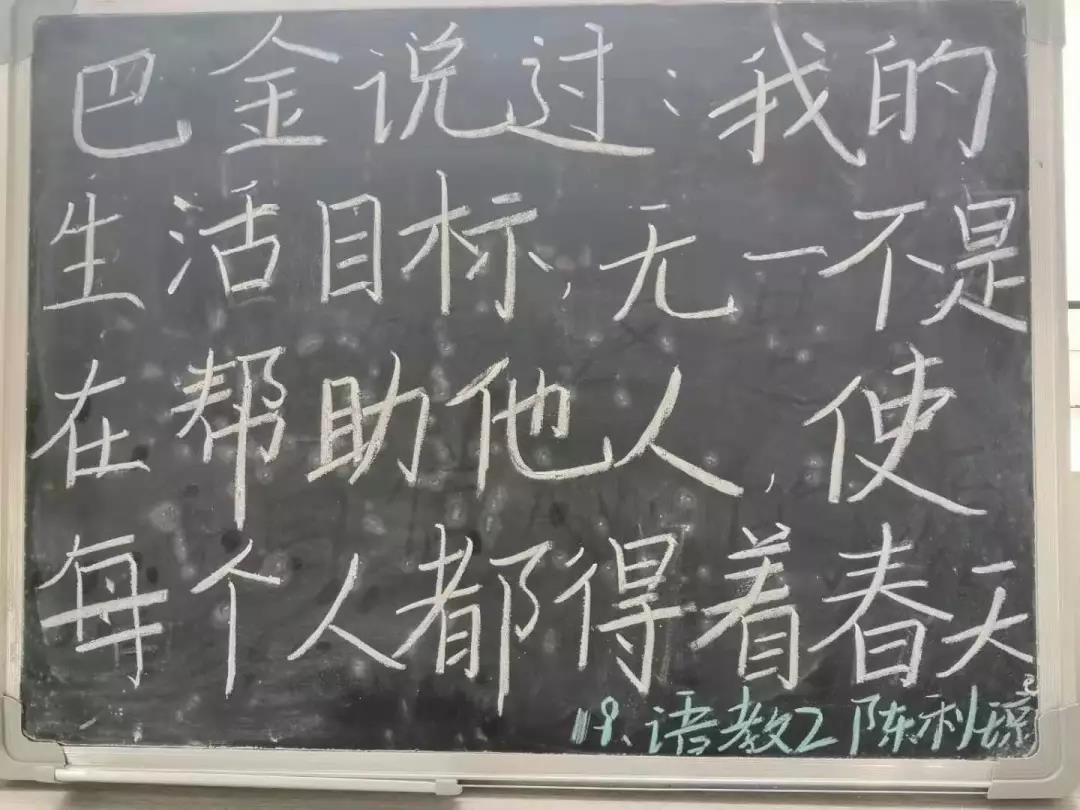 巴金说过:我的
生活目标,无一不是
在帮助他人,使
每个人都得着春天
19、语教2 陈利琼